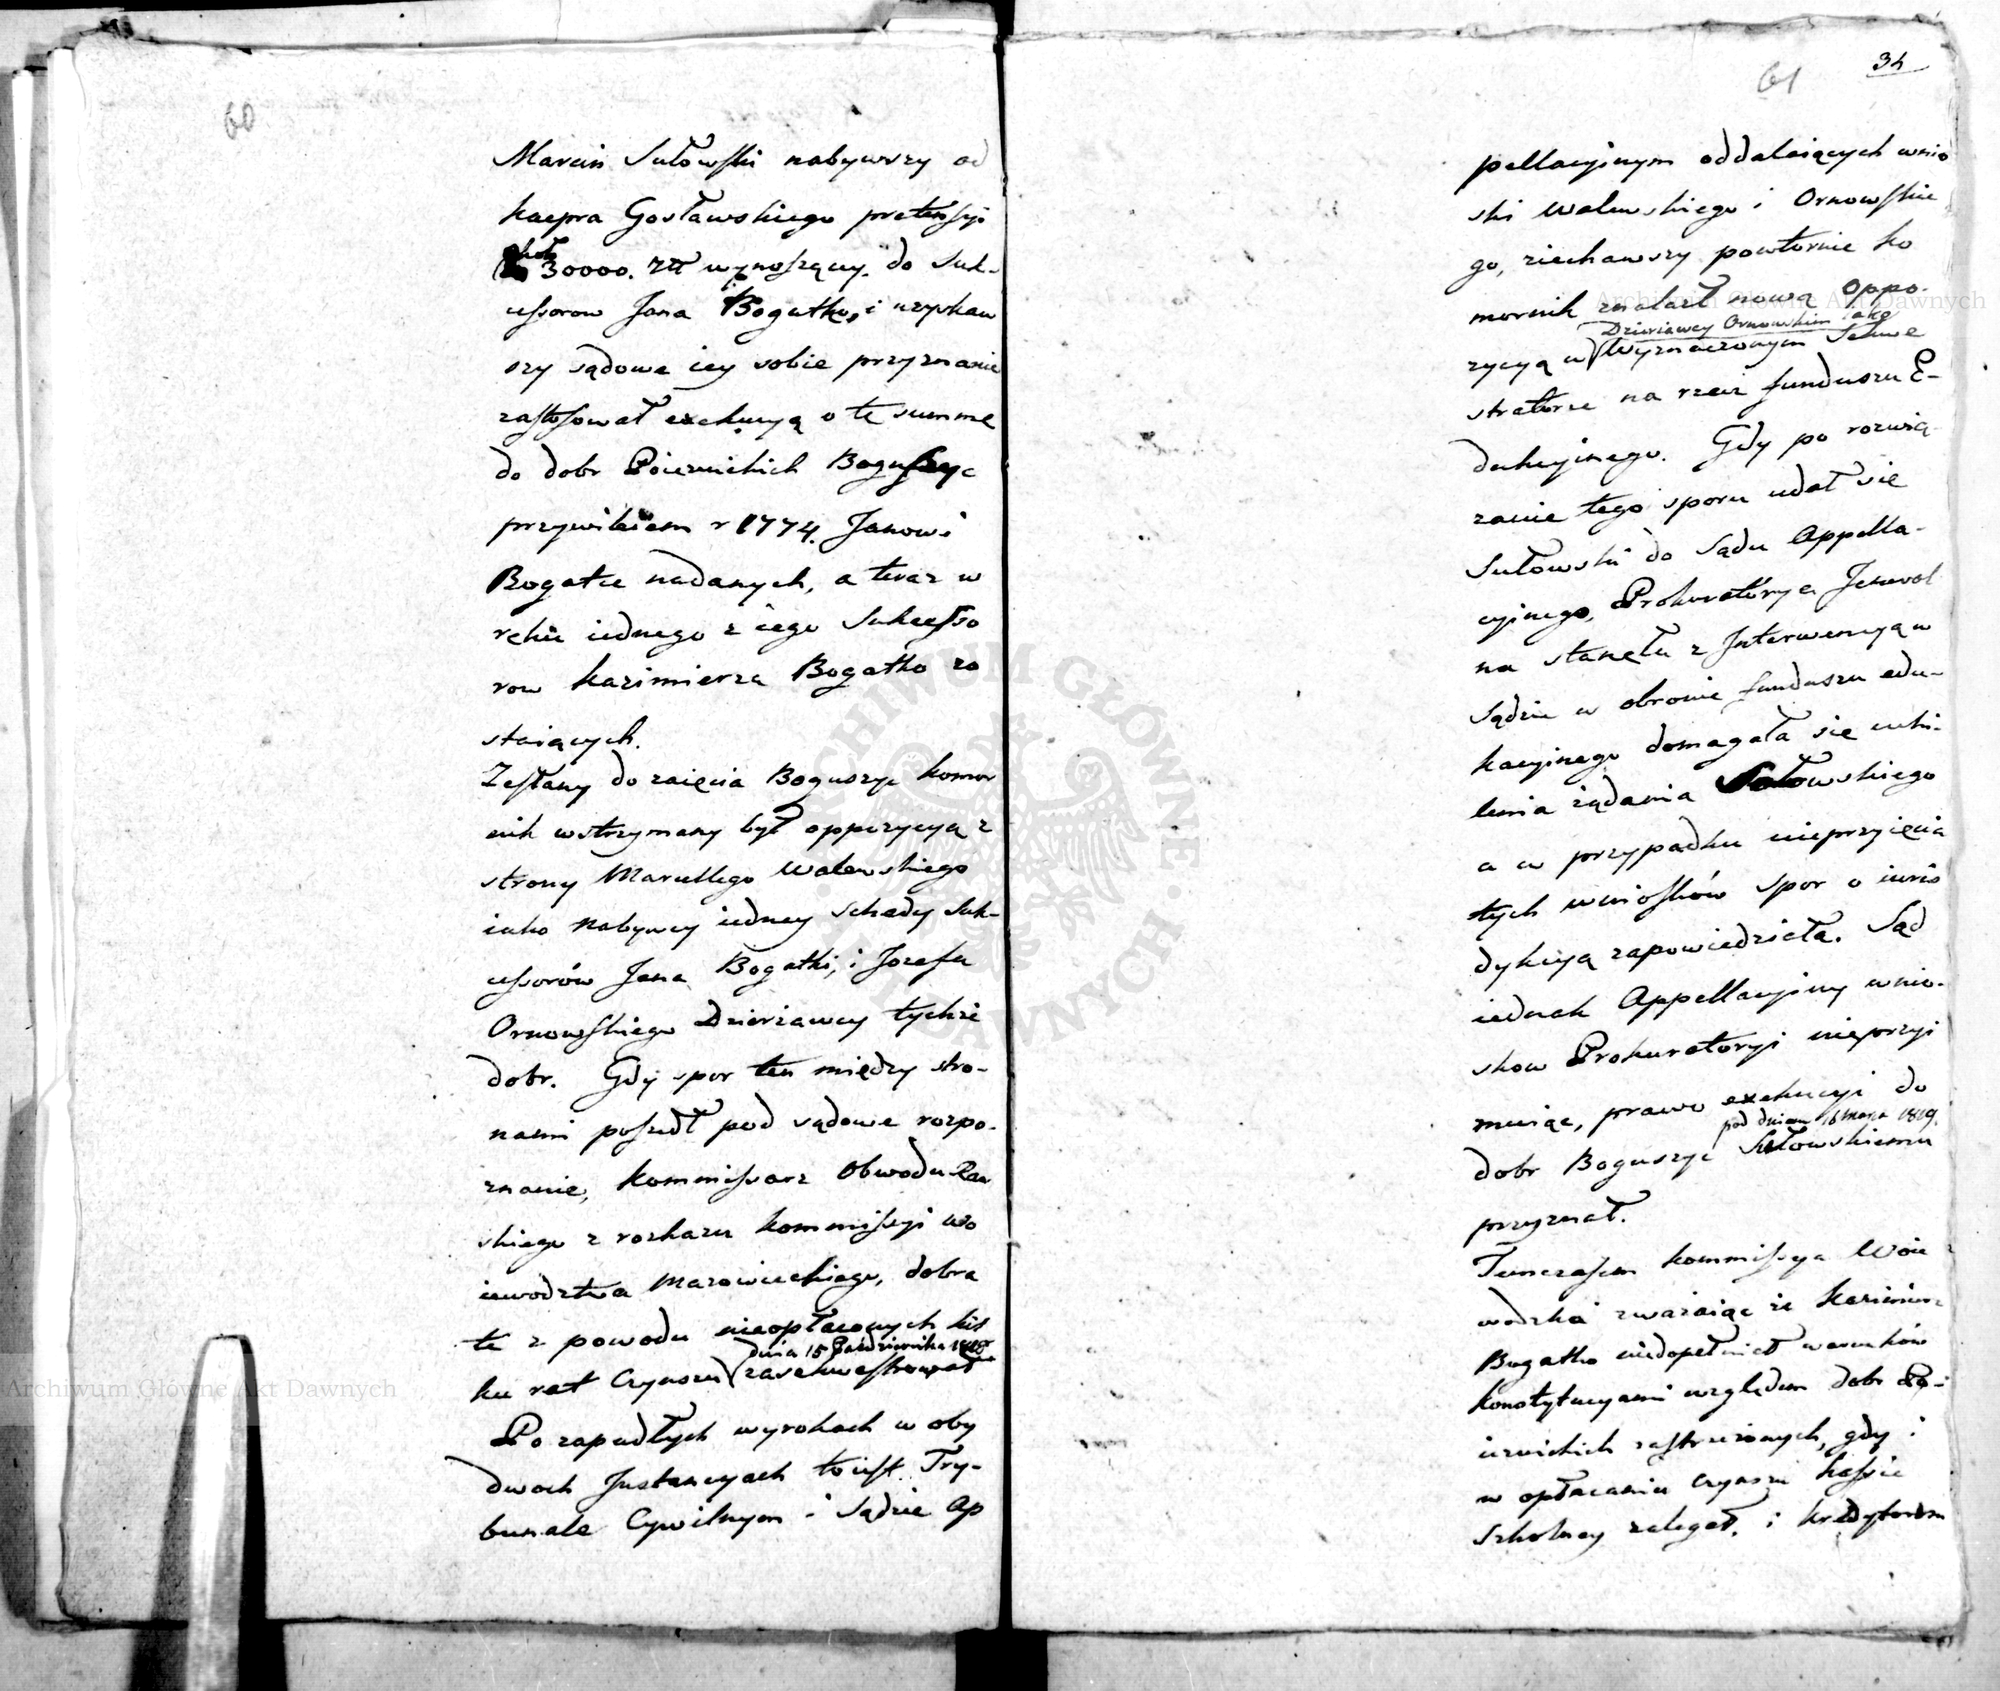 60
Marcin Sułowski nabywszy od
Kacpra Gosławskiego pretensyi
30000. Złł wynoszący. do Suk-
cessorow Jana Bogatko, i uzyskaw
szy sądowe iey sobie przyznanie
zastosował exekucyą o tę summę
do dobr Poiezuickich Boguszyc
przywileiem r 1774. Janowi
Bogatce nadanych, a teraz w
ręku iednego z iego Sukcesso
row Kazimierza Bogatko zo
staiących.
Zesłany do zaięcia Boguszyc Komor
nik wstrzymany był oppozycyą z
strony Marcellego Walewskiego
iako Nabywcy iedney Schedy Suk-
cessorów Jana Bogatki, i Jozefa
Ornowskiego Dzierżawcy tychże
dobr. Gdy spor ten między stro-
nami poszedł pod sądowe rozpo-
znanie, Kommissarz Obwodu Raw
skiego z rozkazu Kommissyi Wo
iewodztwa Mazowieckiego, dobra
te z powodu nieopłaconych kil
dnia 15 Października 1818
ku rat Czynszu zasekwestrował
Po zapadłych wyrokach w oby
dwoch Instancyach to iest Try-
bunale Cywilnym i Sądzie Ap
61
34
pellacyinym oddalaiących wnio
ski Walewskiego i Ornowskie
go, ziechawszy powtornie Ko
mornik znalazł nową Oppo-
Dzierżawcy Ornowskim iako
zycyą w Wyznaczonym Sekwe
stratorze na rzecz funduszu E-
dukcyinego. Gdy po rozwią-
zanie tego sporu udał się
Sułowski do Sądu Appella-
cyinego, Prokuratorya Jeneral
na stanęła z Interwencyą w
Sądzie w obronie funduszu edu-
kacyinego domagała się uchi-
lenia żądania Sułowskiego
a w przypadku nieprzyięcia
tych wniosków spor o iuris
dykcyą zapowiedziała. Sąd
iednak Appellacyiny wnio-
skow Prokuratoryi nieprzyi
muiąc, prawo exekucyi do
pod dniem 16 Maja 1819.
dobr Boguszyc Sułowskiemu
przyznał.
Tymczasem Kommissya Woie
wodzka zważaiąc że Kazimierz
Bogatko niedopełnił warunków
Konstytucyami względem dobr Po-
iezuickich zastrzeżonych, gdy i
w opłacaniu czynszu Kassie
Szkolney zalegał, i kredytorom